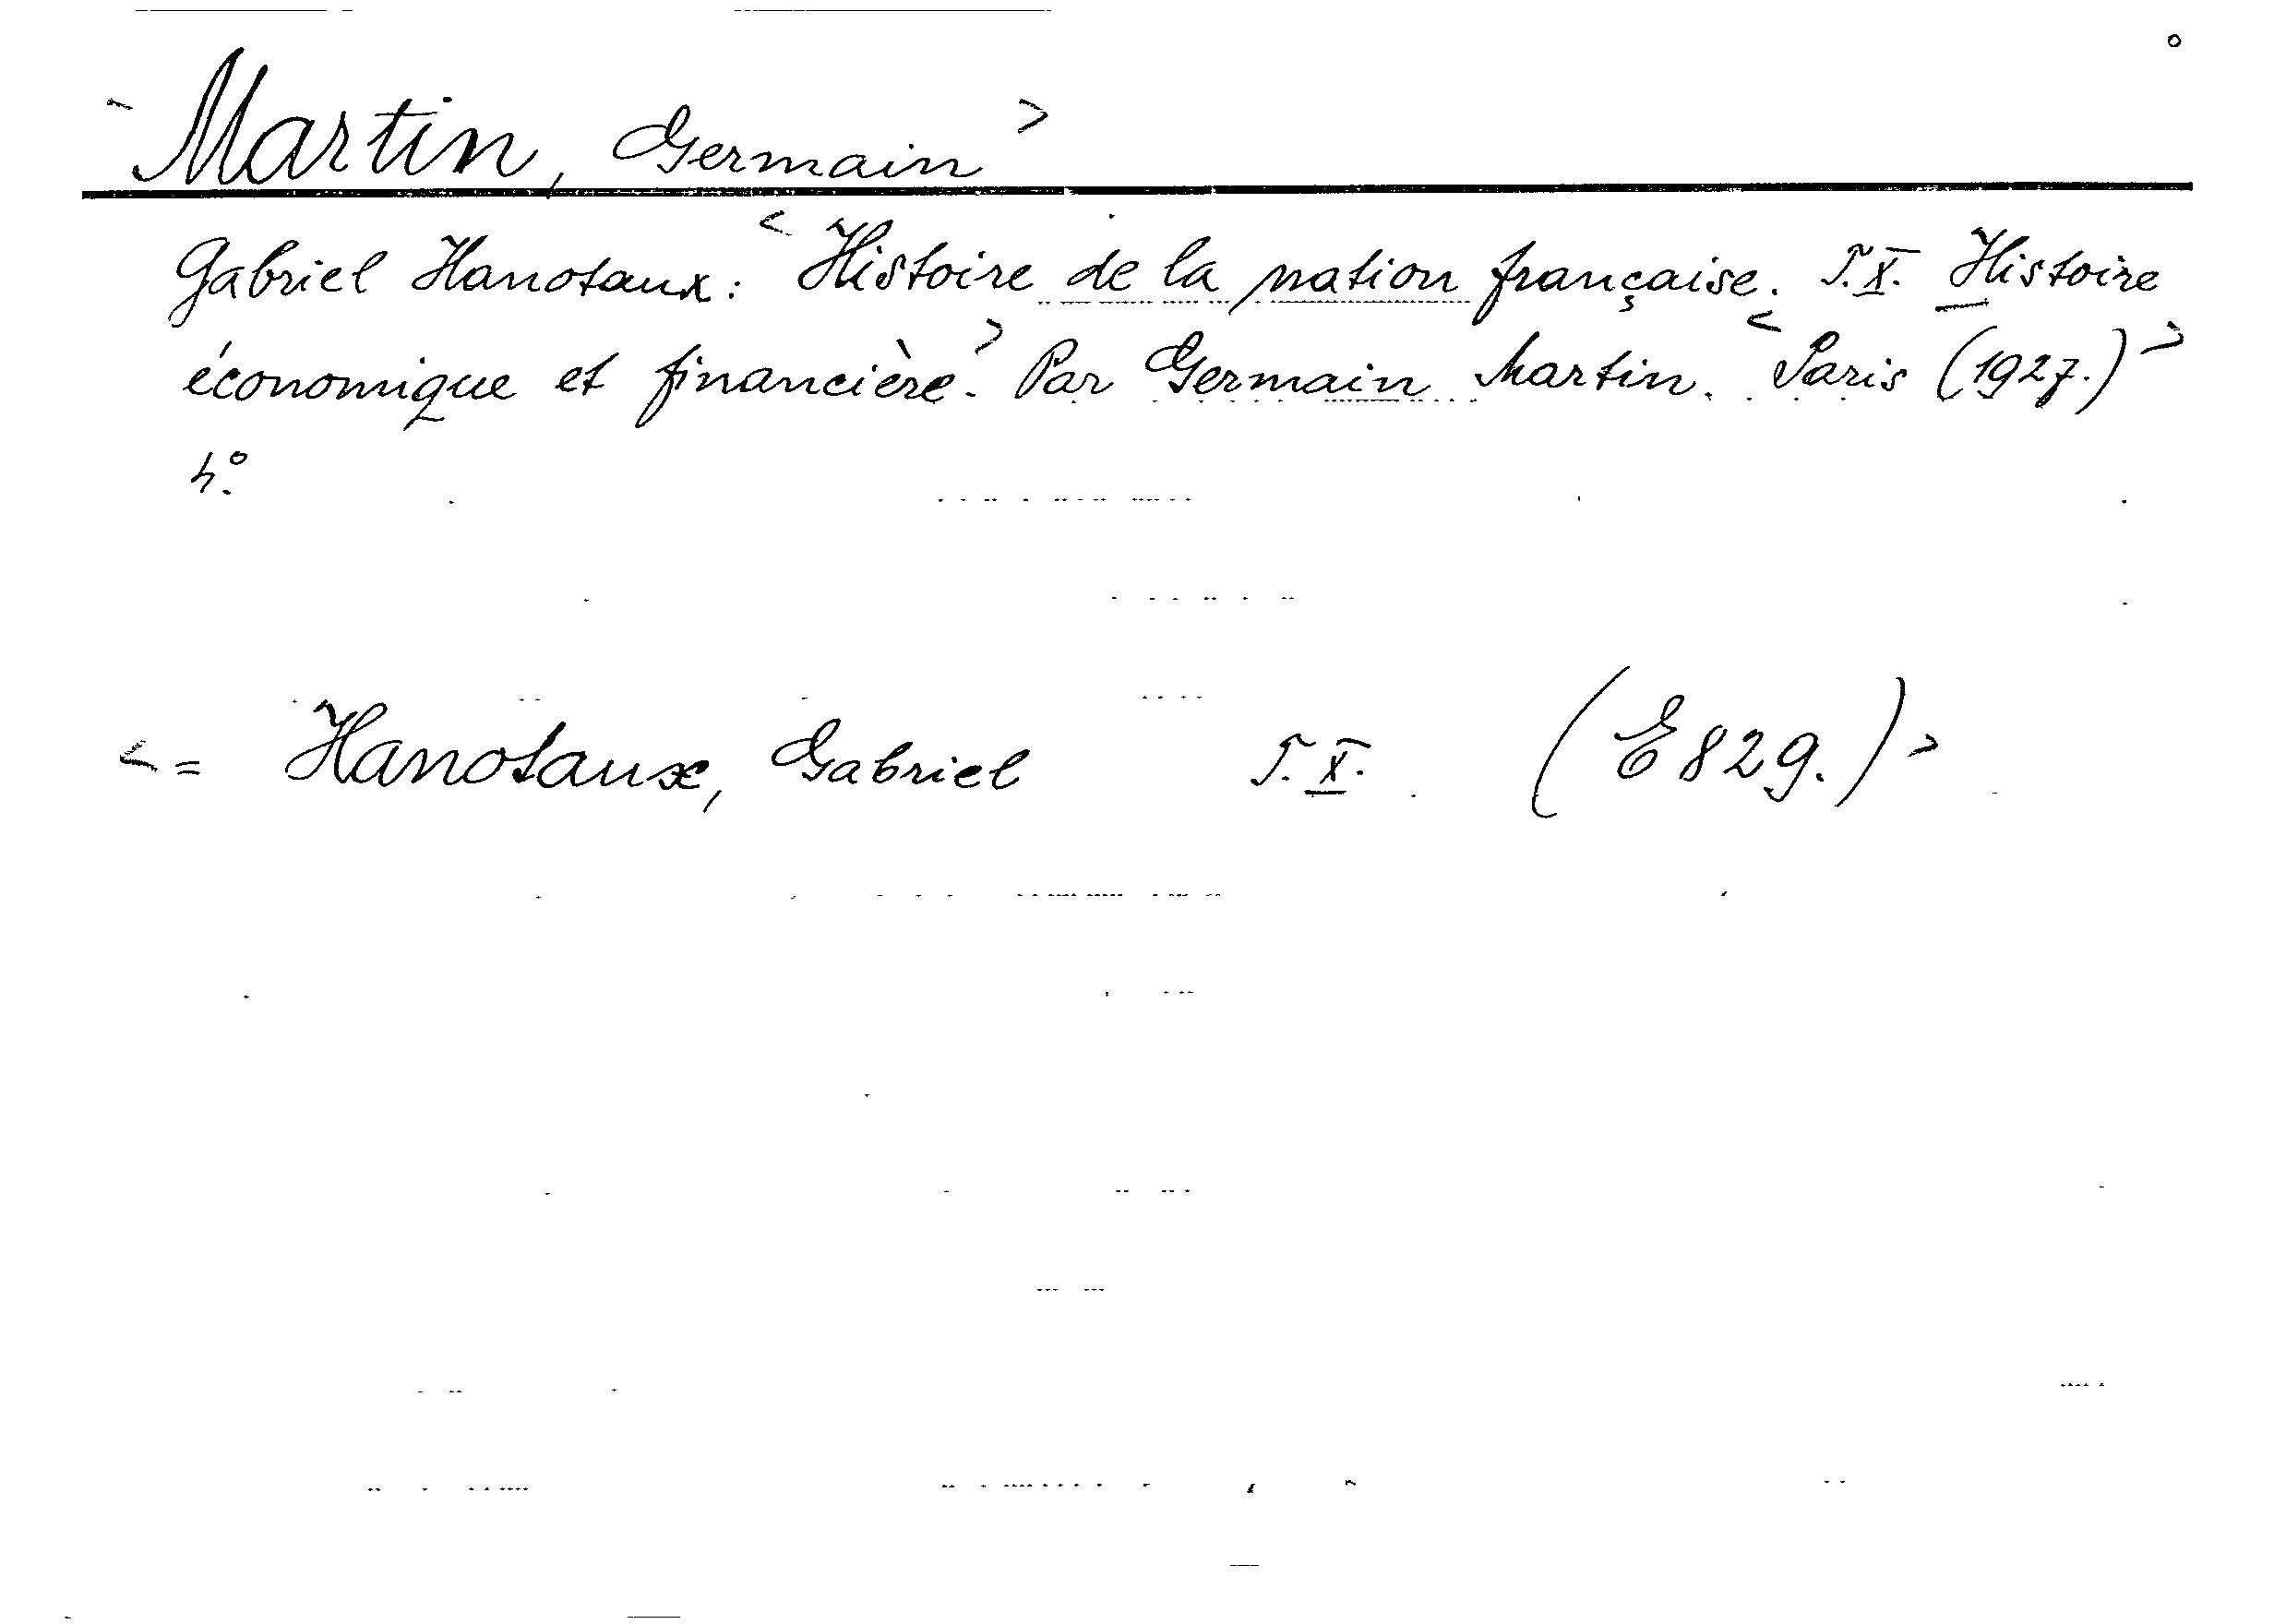 Martin, Germain >
Gabriel Hanotaux: < Histoire de la nation française. T.X. Histoire
économique et financière. > Par Germain Martin. < Paris (1927.) >
4°.
< = Hanotaux, Gabriel T.X. (E 829.) >